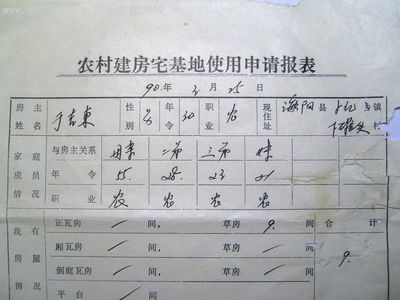 农村建房宅基地使用申请报表
90年 3月 25日
房主姓名 于吉東 性别 男 年令 30 职业 农 现住址 海阳县 乡镇
家庭成员情况
与房主关系 母亲 二弟 三弟 妹
年令 55. 28 23 21
职业 农 农 农 农
现有房屋情况
正瓦房 / 间, 草房 9. 间 合计
厢瓦房 / 间, 草房 / 间 9.
倒庭瓦房 / 间, 草房 / 间
平台 / 间